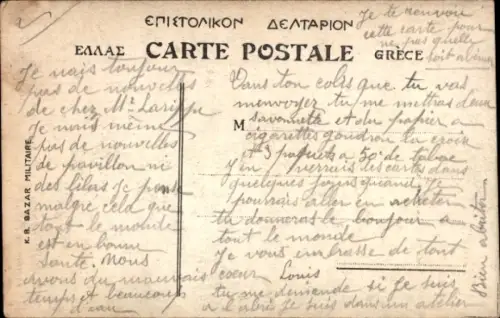 ΕΠΙΣΤΟΛΙΚΟΝ ΔΕΛΤΑΡΙΟΝ
ΕΛΛΑΣ CARTE POSTALE GRÈCE
Je te renvoi
cette carte pour
ne pas quelle
soit abimé
K. B. BAZAR MILITAIRE
M
Je nais toujour
pas de nouvelles
de chez Mr
Je nais même
pas de nouvelles
de pavillon ni
des lilas Je pense
malgre cela que
tout le monde
est en bonne
Santé. Nous
avons du mauvais
temps et beaucoup
d'eau
Dans ton colis que tu vas
menvoyez tu me mettras deux
savonnette et du papier a
cigarettes goudron la croix
et 3 paquets a 50c de tabac
J'en verrais les cartes dans
quelques jours quand Je
pourrais aller en acheter
tu donneras le bonjour a
tout le monde
Je vous embrasse de tout
coeur Louis
tu me demande si je suis
a Je suis dans un atelier
Bien abriter